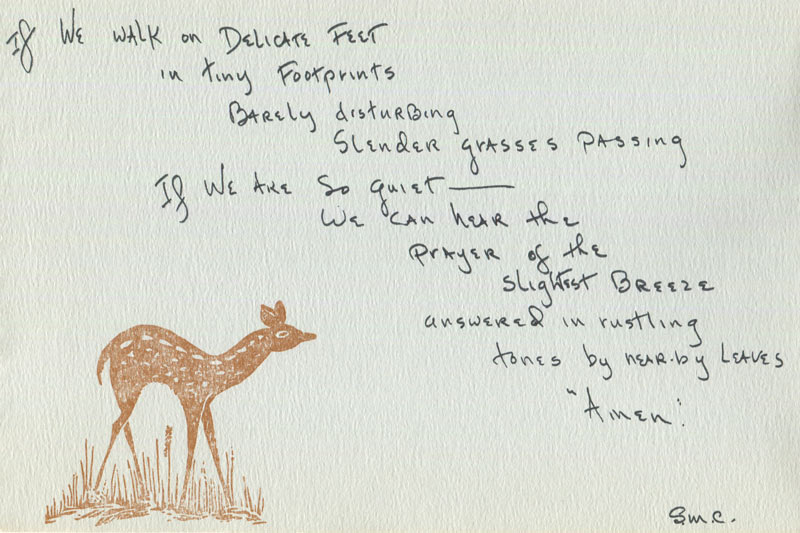 If We WALK on DELICATE FEET
in tiny Footprints
BARELY disturbing
SLENDER grASSES PASSING
If We ARE So quiet——
We CAN hEAR the
PrAYER of the
SlightEST BREEZE
answered in rustling
tones by nEAR-by LEAVES
"Amen".
S.M.C.